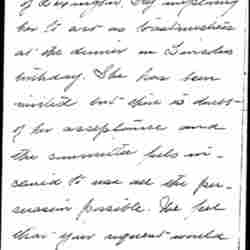 of Lexington, Ky imploring
her to act as toastmistress
at the dinner on Lincoln
birthday. She has been
invited but there is doubt
of her acceptance and
the committee feels in-
clined to use all the per-
suasion possible. We feel
that your request would